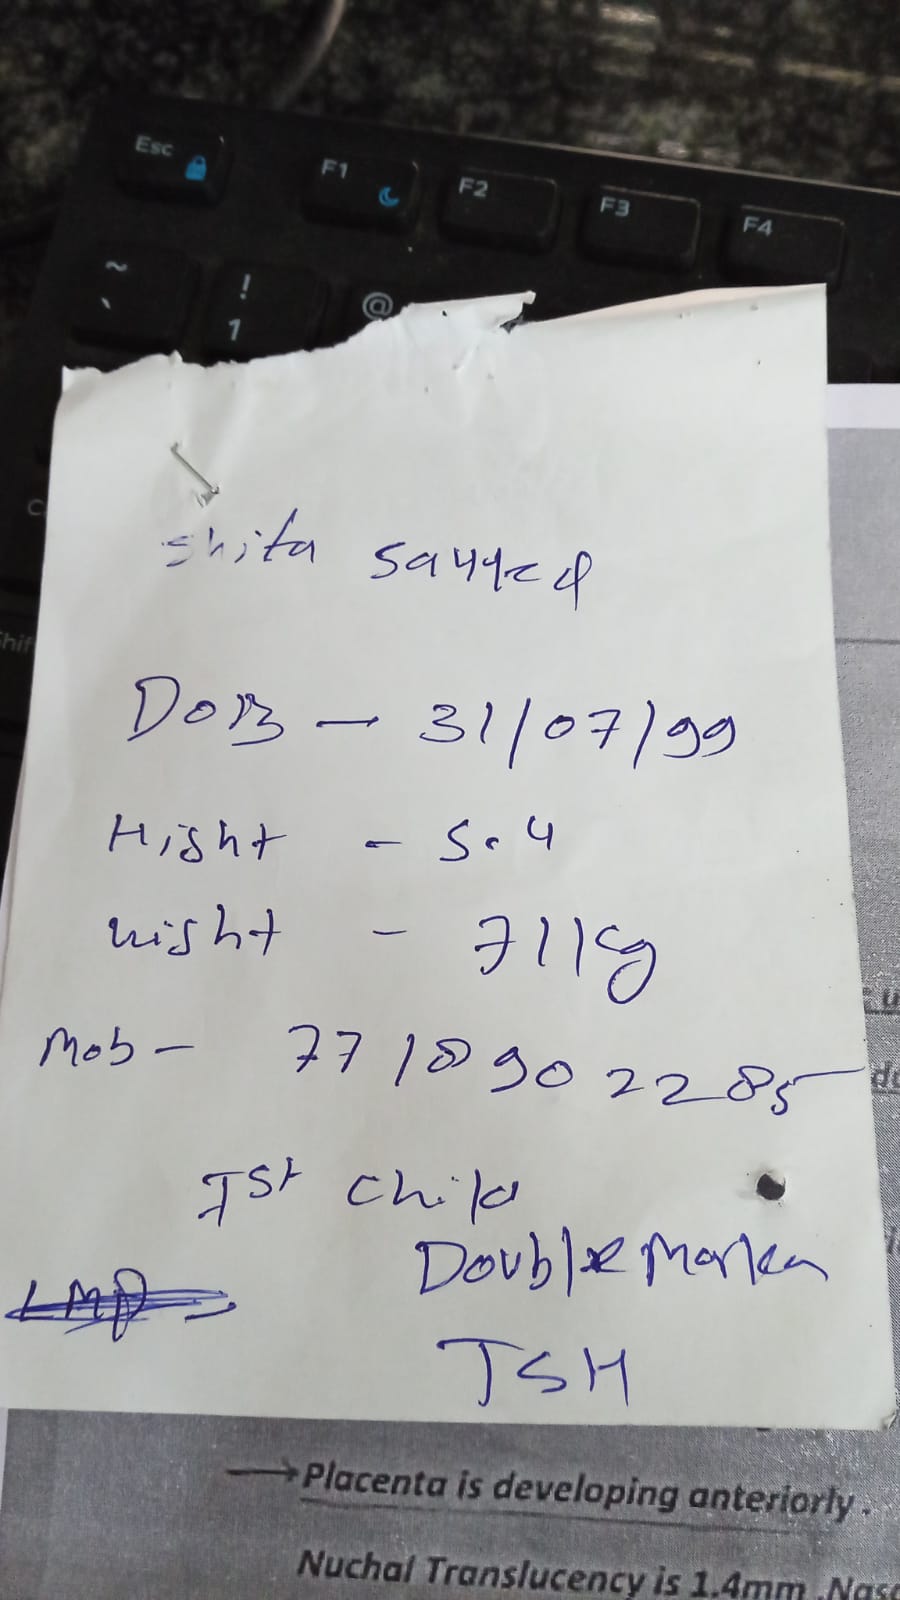 Esc
F1
F2
F3
F4
~
`
!
1
@
Shifa Sayyed
DOB - 31/07/99
Hight - 5.4
wight - 71kg
Mob - 7718902285
Ist Child
Double Marker
LMP
TSH
→ Placenta is developing anteriorly.
Nuchal Translucency is 1.4mm .